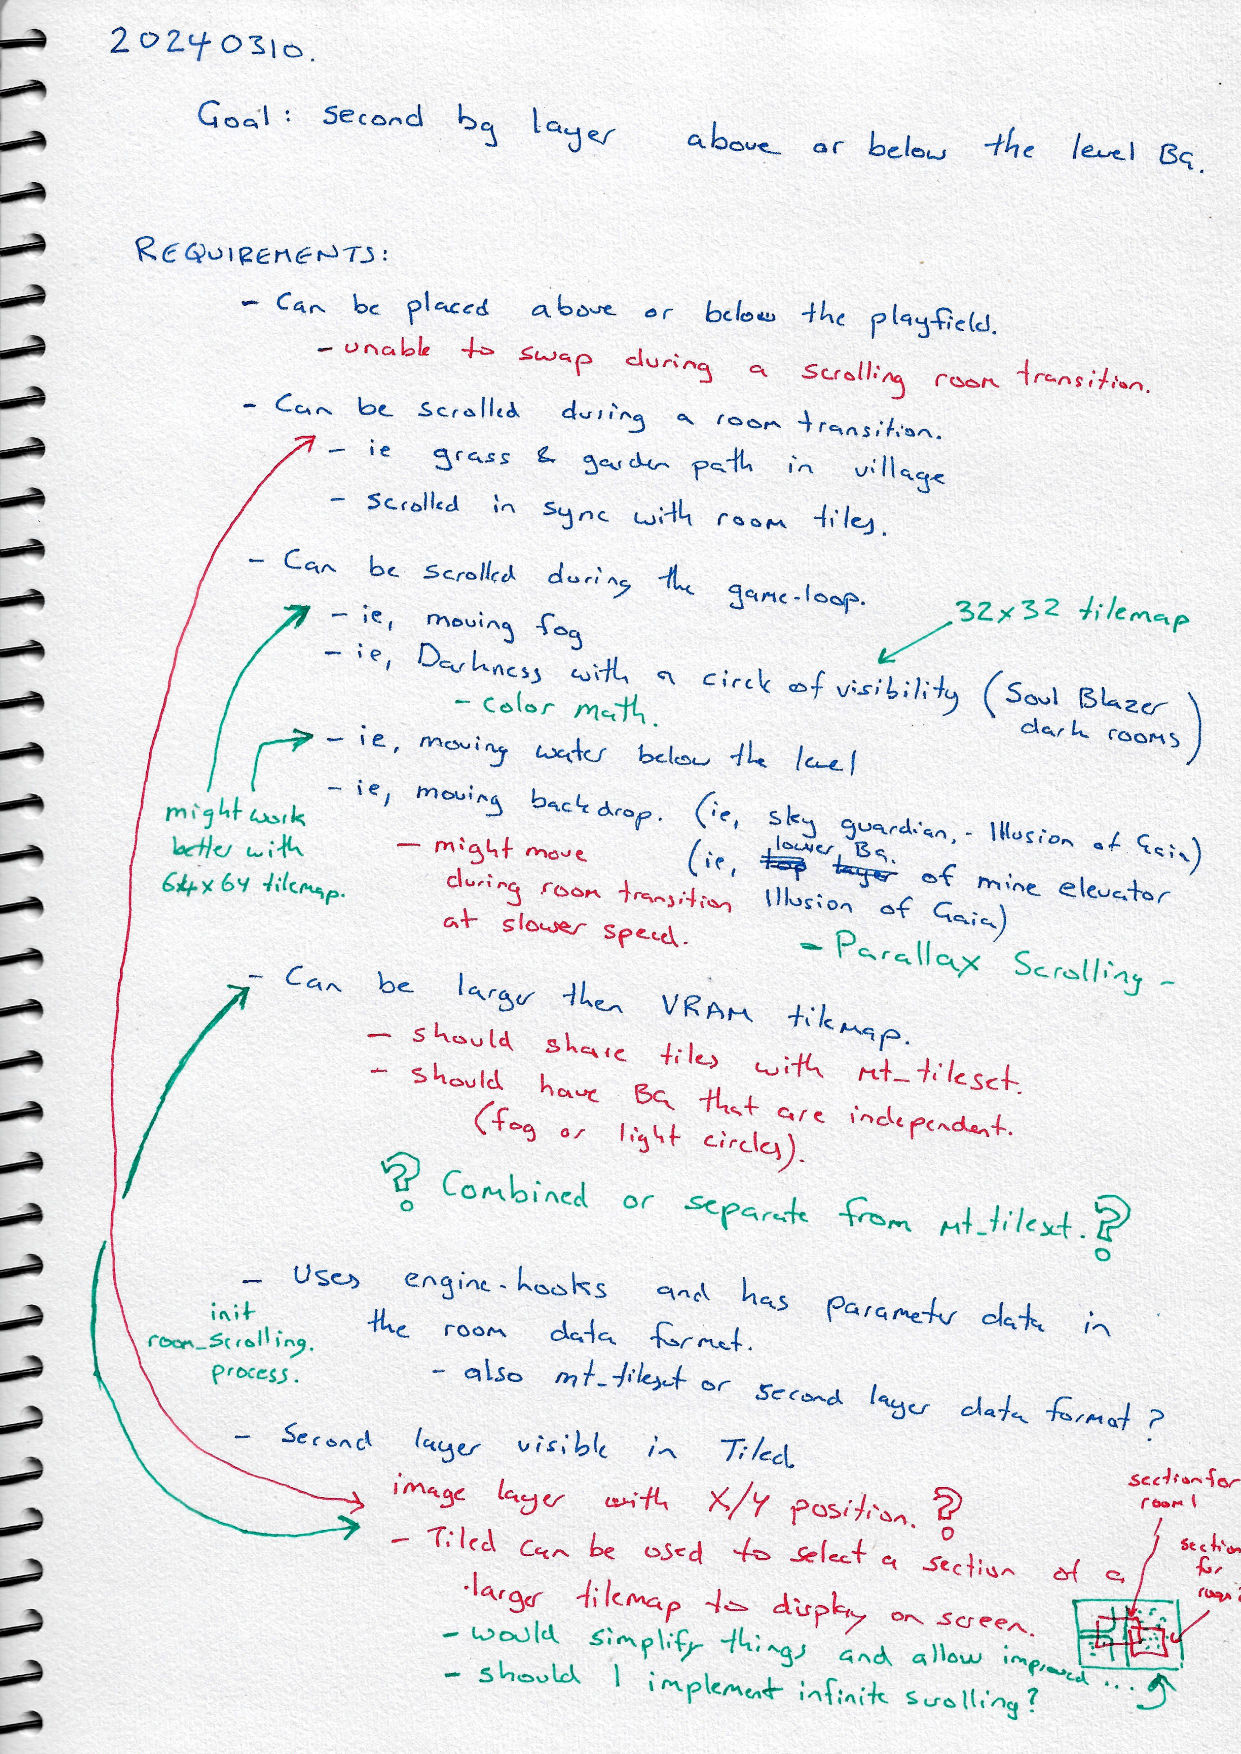 20240310.
Goal: second bg layer above or below the level BG.
REQUIREMENTS:
- Can be placed above or below the playfield.
- unable to swap during a scrolling room transition.
- Can be scrolled during a room transition.
- ie grass & garden path in village
- scrolled in sync with room tiles.
- Can be scrolled during the game-loop.
32x32 tilemap
- ie, moving fog
- ie, Darkness with a circle of visibility (Soul Blazer
dark rooms)
- color math.
- ie, moving water below the level
- ie, moving backdrop. (ie, sky guardian, - Illusion of Gaia)
might work
better with
64x64 tilemap.
(ie, lower BG. of mine elevator
Illusion of Gaia)
- might move
during room transition
at slower speed.
- Parallax Scrolling -
- Can be larger then VRAM tilemap.
- should share tiles with mt_tileset.
- should have BG that are independent.
(fog or light circles).
? Combined or separate from mt_tileset. ?
- Uses engine-hooks and has parameter data in
the room data format.
init
room_scrolling.
process.
- also mt_tileset or second layer data format?
- Second layer visible in Tiled.
image layer with X/Y position. ?
- Tiled can be used to select a section of a
larger tilemap to display on screen.
section for
room 1
section
for
- would simplify things and allow improved ...
- should I implement infinite scrolling?